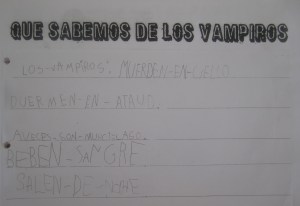 QUE SABEMOS DE LOS VAMPIROS
LOS-VAMPIROS-MUERDEN-EN-CELLO.
DUERMEN EN ATAUD.
AVECES-SON-MURCIELAGO.
BEBEN-SANGRE
SALEN-DE-NOHE